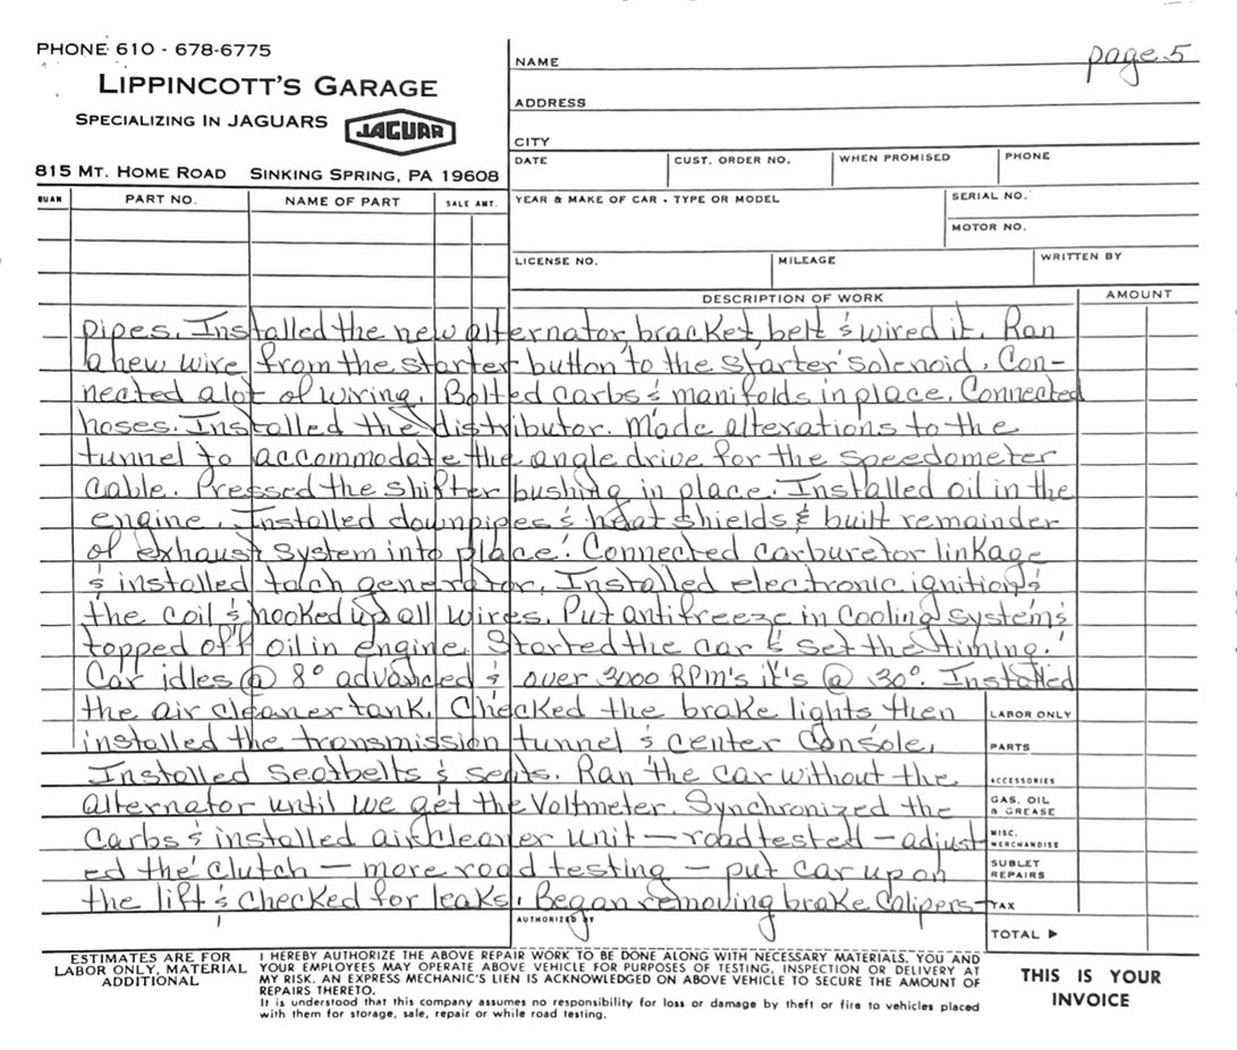 page 5
PHONE 610 - 678-6775
LIPPINCOTT'S GARAGE
SPECIALIZING IN JAGUARS JAGUAR
815 MT. HOME ROAD SINKING SPRING, PA 19608
NAME
ADDRESS
CITY
DATE CUST. ORDER NO. WHEN PROMISED PHONE
YEAR & MAKE OF CAR - TYPE OR MODEL SERIAL NO.
MOTOR NO.
LICENSE NO. MILEAGE WRITTEN BY
QUAN PART NO. NAME OF PART SALE AMT.
DESCRIPTION OF WORK AMOUNT
pipes. Installed the new alternator, bracket, belt & wired it. Ran
a new wire from the starter button to the starter solenoid. Con-
nected alot of wiring. Bolted carbs & manifolds in place. Connected
hoses. Installed the distributor. Made alterations to the
tunnel to accommodate the angle drive for the speedometer
cable. Pressed the shifter bushing in place. Installed oil in the
engine. Installed downpipes & heat shields & built remainder
of exhaust system into place. Connected carburetor linkage
& installed tatch generator. Installed electronic ignition &
the coil & hooked up all wires. Put antifreeze in cooling system &
topped off oil in engine. Started the car & set the timing.
Car idles @ 8° advanced & over 3000 RPM's it's @ 30°. Installed
the air cleaner tank. Checked the brake lights then
installed the transmission tunnel & center console.
Installed seatbelts & seats. Ran the car without the
alternator until we get the voltmeter. Synchronized the
carbs & installed air cleaner unit — roadtested — adjust-
ed the clutch — more road testing — put car up on
the lift & checked for leaks. Began removing brake calipers—
LABOR ONLY
PARTS
ACCESSORIES
GAS, OIL
& GREASE
MISC.
MERCHANDISE
SUBLET
REPAIRS
TAX
TOTAL ▶
AUTHORIZED BY
ESTIMATES ARE FOR
LABOR ONLY, MATERIAL
ADDITIONAL
I HEREBY AUTHORIZE THE ABOVE REPAIR WORK TO BE DONE ALONG WITH NECESSARY MATERIALS. YOU AND
YOUR EMPLOYEES MAY OPERATE ABOVE VEHICLE FOR PURPOSES OF TESTING, INSPECTION OR DELIVERY AT
MY RISK. AN EXPRESS MECHANIC'S LIEN IS ACKNOWLEDGED ON ABOVE VEHICLE TO SECURE THE AMOUNT OF
REPAIRS THERETO.
It is understood that this company assumes no responsibility for loss or damage by theft or fire to vehicles placed
with them for storage, sale, repair or while road testing.
THIS IS YOUR
INVOICE